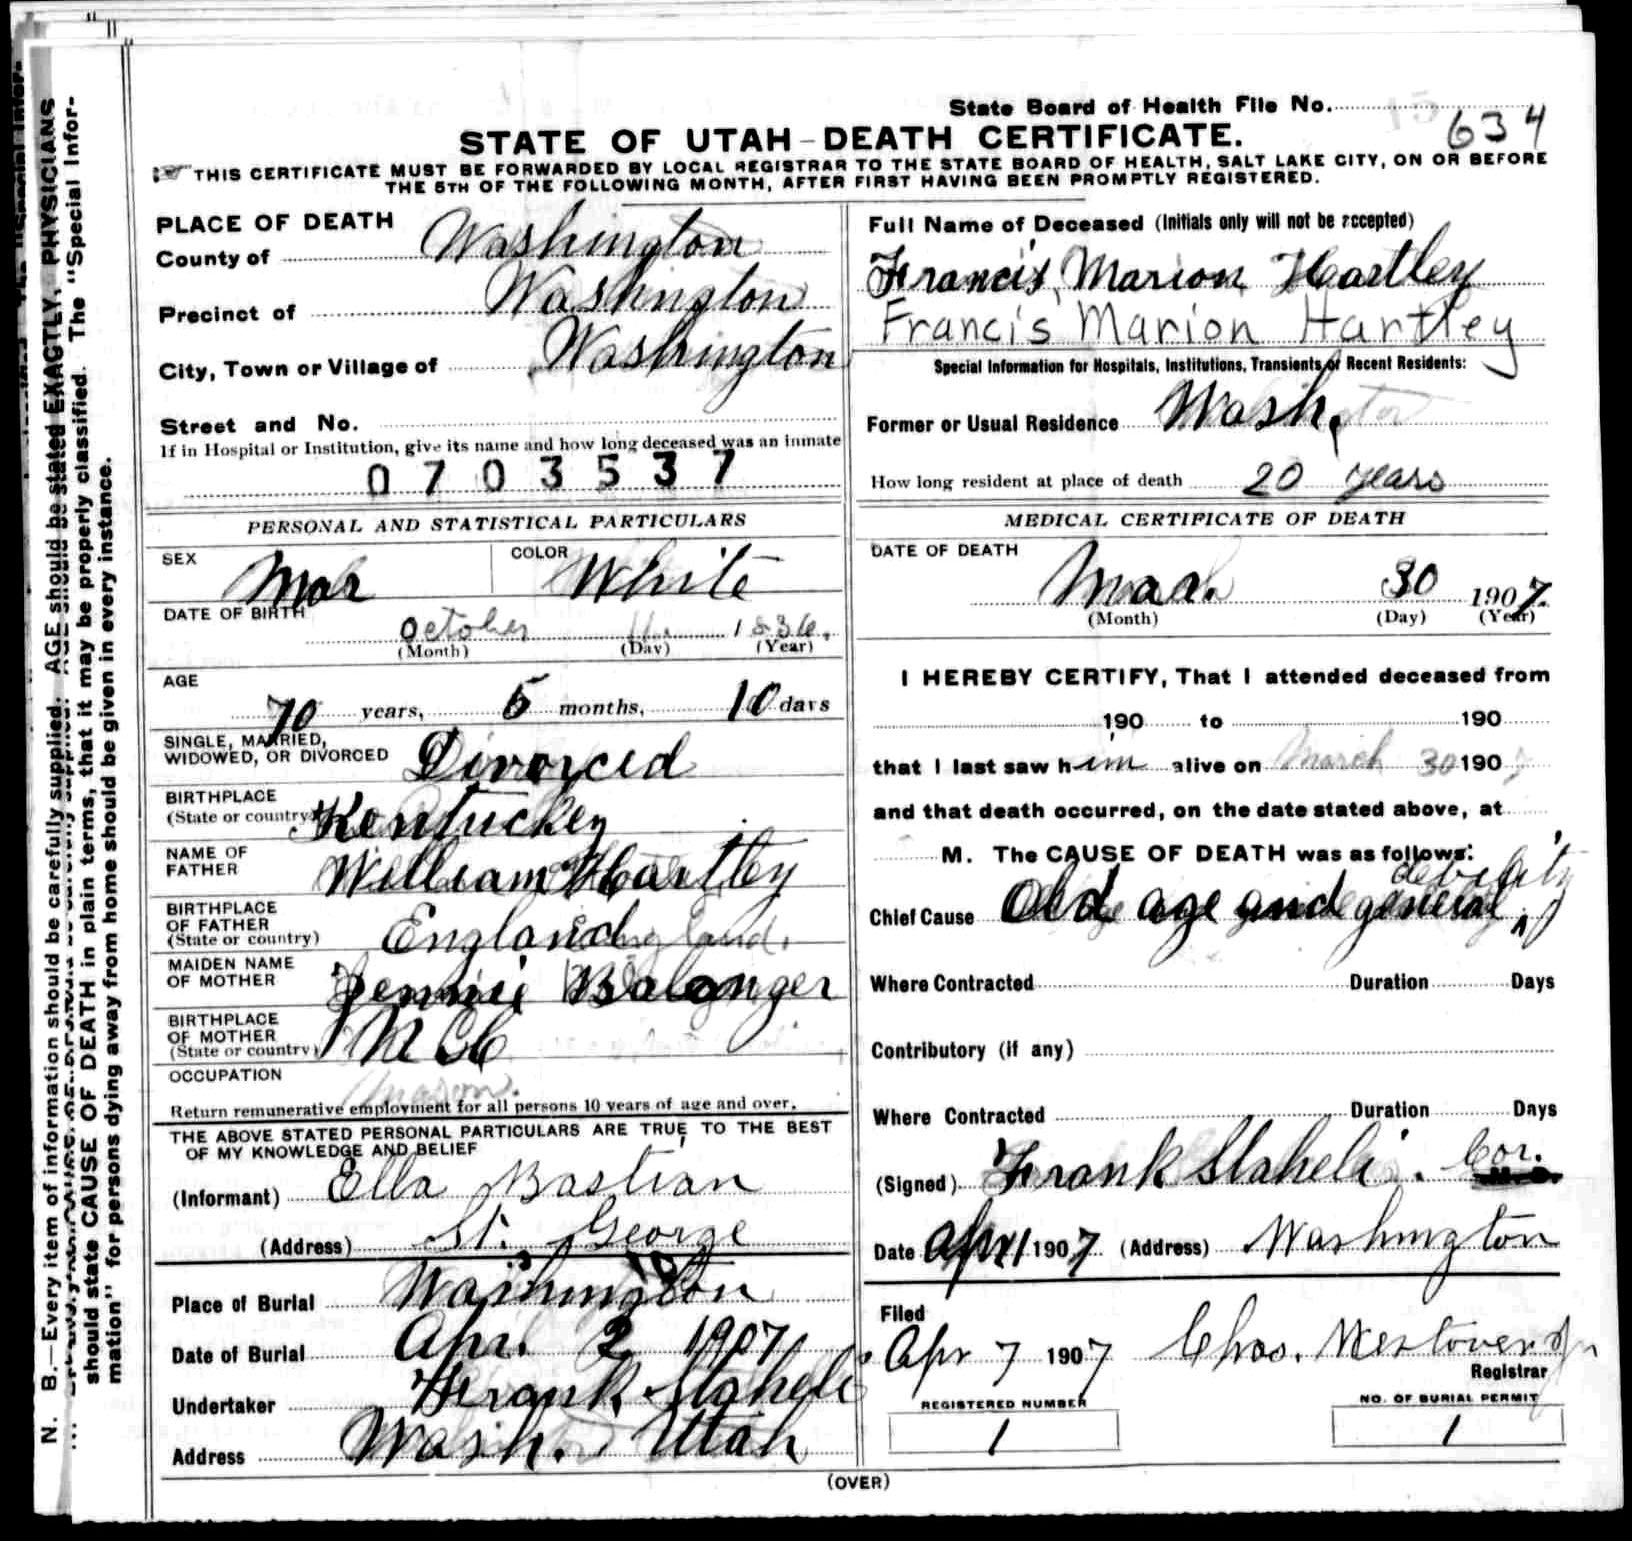 State Board of Health File No. 634
STATE OF UTAH-DEATH CERTIFICATE.
THIS CERTIFICATE MUST BE FORWARDED BY LOCAL REGISTRAR TO THE STATE BOARD OF HEALTH, SALT LAKE CITY, ON OR BEFORE
THE 5TH OF THE FOLLOWING MONTH, AFTER FIRST HAVING BEEN PROMPTLY REGISTERED.
PLACE OF DEATH
County of Washington
Precinct of Washington
City, Town or Village of Washington
Street and No.
If in Hospital or Institution, give its name and how long deceased was an inmate
0703537
PERSONAL AND STATISTICAL PARTICULARS
SEX
COLOR White
DATE OF BIRTH
October 1836.
(Month) (Day) (Year)
AGE
70 years, 5 months, 10 days
SINGLE, MARRIED,
WIDOWED, OR DIVORCED Divorced
BIRTHPLACE
(State or country) Kentuckey
NAME OF
FATHER William Hartley
BIRTHPLACE
OF FATHER
(State or country) England
MAIDEN NAME
OF MOTHER Jennie
BIRTHPLACE
OF MOTHER
(State or country)
OCCUPATION
Mason.
Return remunerative employment for all persons 10 years of age and over.
THE ABOVE STATED PERSONAL PARTICULARS ARE TRUE TO THE BEST
OF MY KNOWLEDGE AND BELIEF
(Informant) Ella Bastian
(Address) St. George
Place of Burial Washington
Date of Burial Apr. 2 1907
Undertaker Frank Staheli
Address Wash. Utah
Full Name of Deceased (Initials only will not be accepted)
Francis Marion Hartley
Francis Marion Hartley
Special Information for Hospitals, Institutions, Transients or Recent Residents:
Former or Usual Residence Wash.
How long resident at place of death 20 years
MEDICAL CERTIFICATE OF DEATH
DATE OF DEATH
Mar. 30 1907.
(Month) (Day) (Year)
I HEREBY CERTIFY, That I attended deceased from
190 to 190
that I last saw him alive on March 30 190
and that death occurred, on the date stated above, at
M. The CAUSE OF DEATH was as follows:
Chief Cause Old age and general debility
Where Contracted Duration Days
Contributory (if any)
Where Contracted Duration Days
(Signed) Frank Staheli. Cor.
Date Apr 1 1907 (Address) Washington
Filed
Apr 7 1907 Chas. Westover Jr
Registrar
REGISTERED NUMBER
1
NO. OF BURIAL PERMIT
1
(OVER)
N. B.—Every item of information should be carefully supplied. AGE should be stated EXACTLY. PHYSICIANS
should state CAUSE OF DEATH in plain terms, that it may be properly classified. The "Special Infor-
mation" for persons dying away from home should be given in every instance.